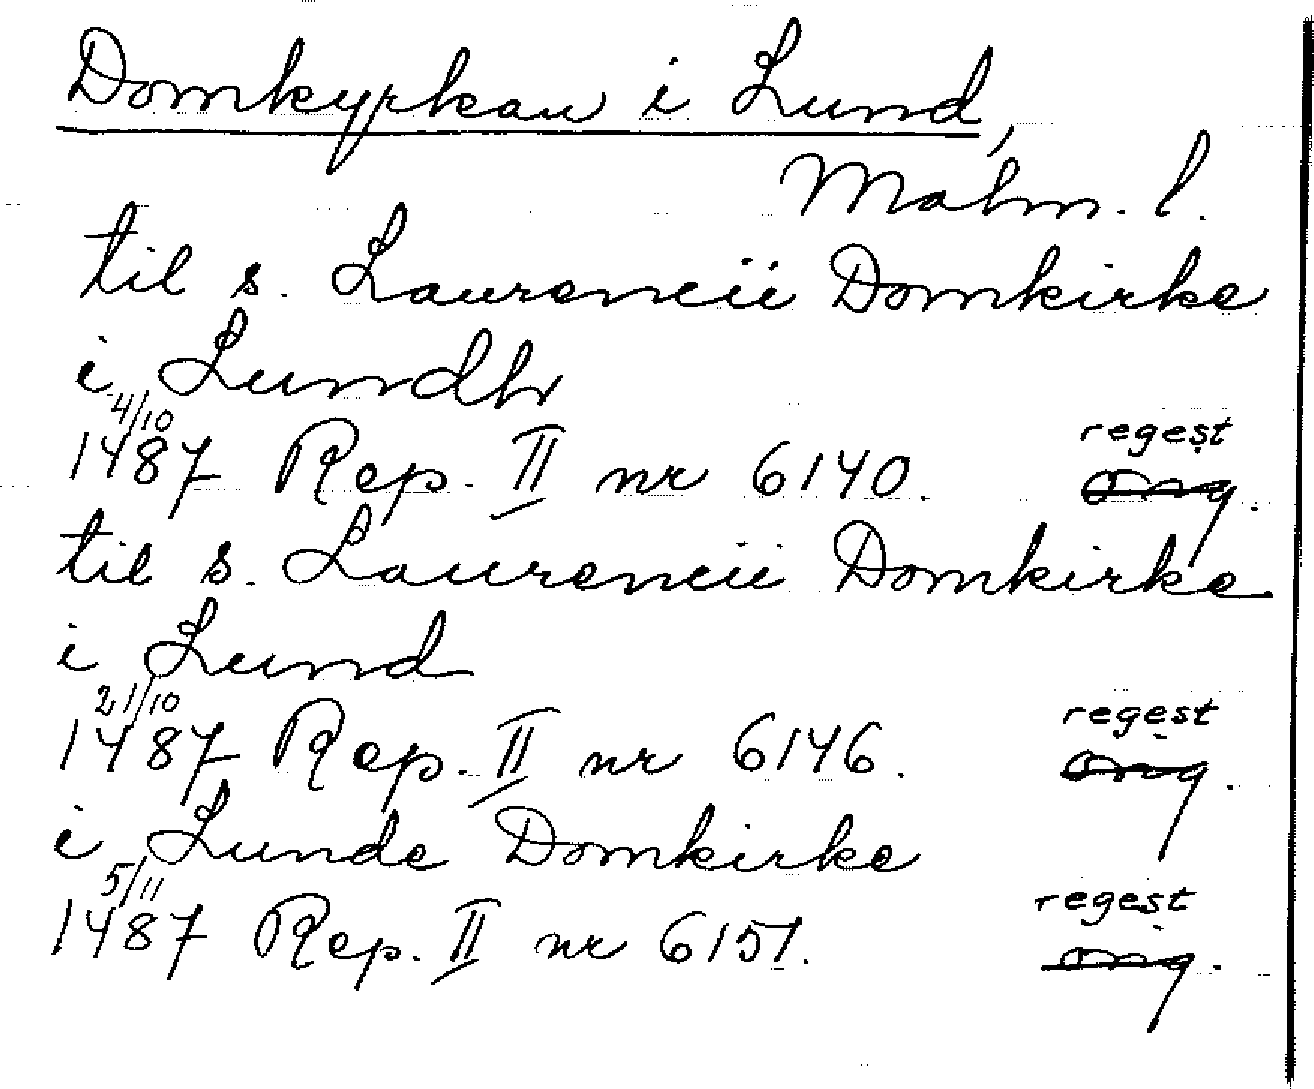 Domkyrkan i Lund,
Malm. l.
til s. Laurencii Domkirke
i Lundh
4/10
1487 Rep. II nr 6140. regest
til s. Laurencii Domkirke
i Lund
21/10
1487 Rep. II nr 6146. regest
i Lunde Domkirke
5/11
1487 Rep. II nr 6151. regest